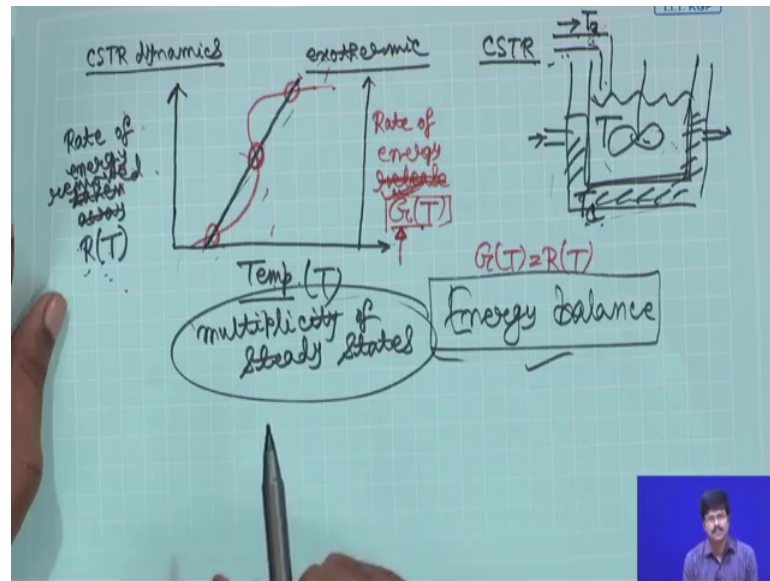 I.I.T. KGP
CSTR dynamics
exothermic
CSTR
Rate of
energy
removed
taken
away
R(T)
Rate of
energy
release
G(T)
Temp. (T)
T
G(T) = R(T)
Energy balance
multiplicity of
steady states